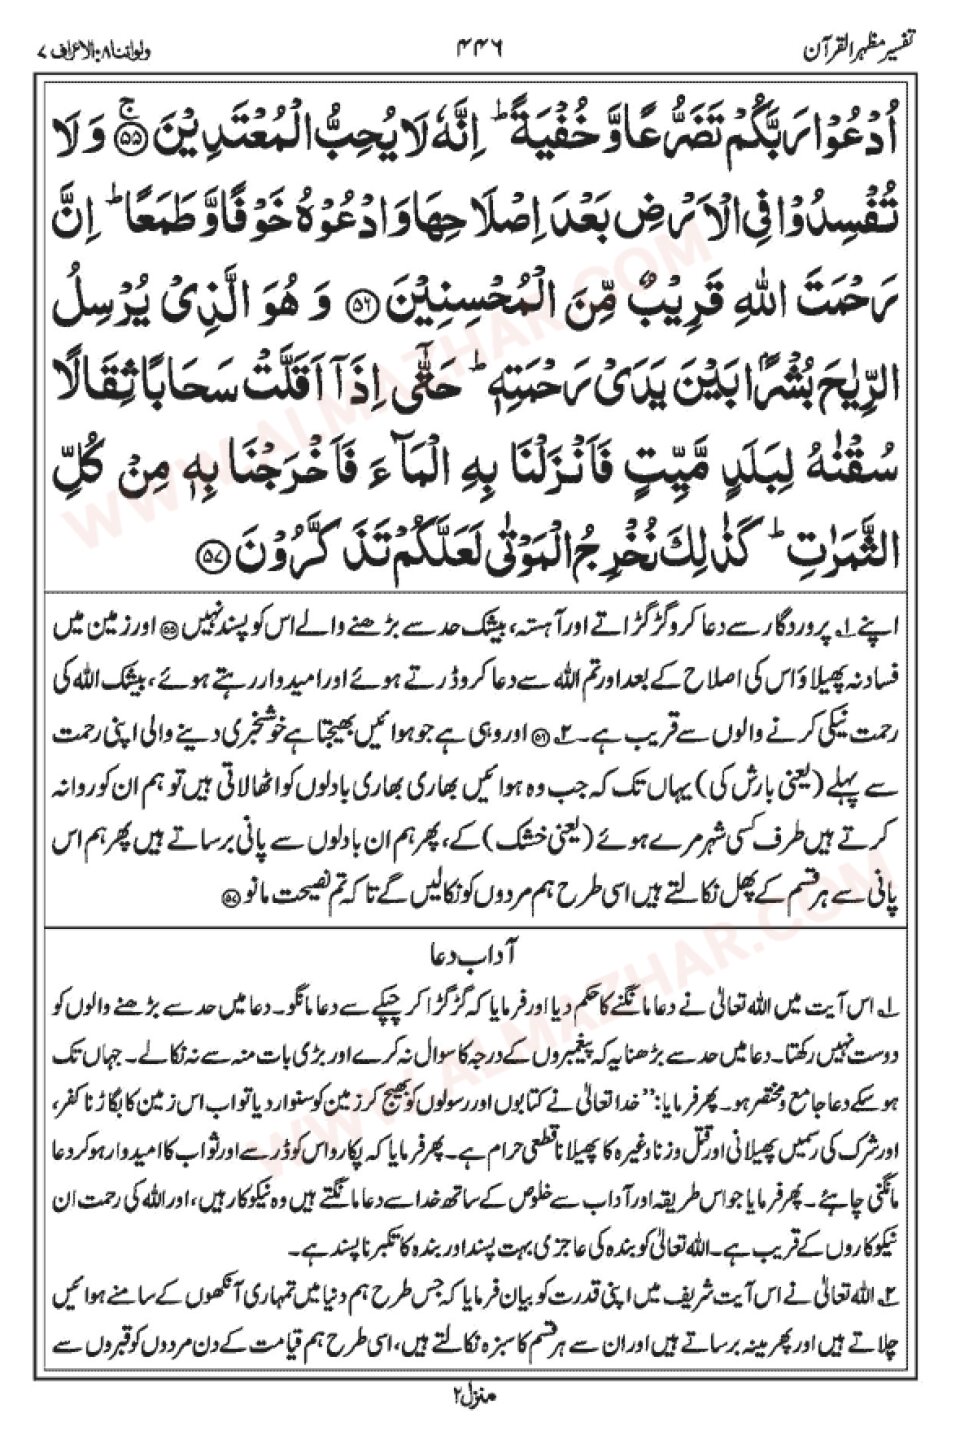 تفسیر مظہر القرآن ۴۴۶ ولواننا۸:الاعراف ۷
اُدْعُوْا رَبَّكُمْ تَضَرُّعًا وَّخُفْيَةً ؕ اِنَّهٗ لَا يُحِبُّ الْمُعْتَدِيْنَ ﴿۵۵﴾ۚ وَلَا
تُفْسِدُوْا فِي الْاَرْضِ بَعْدَ اِصْلَاحِهَا وَادْعُوْهُ خَوْفًا وَّطَمَعًا ؕ اِنَّ
رَحْمَتَ اللّٰهِ قَرِيْبٌ مِّنَ الْمُحْسِنِيْنَ ﴿۵۶﴾ وَهُوَ الَّذِيْ يُرْسِلُ
الرِّيٰحَ بُشْرًۢا بَيْنَ يَدَيْ رَحْمَتِهٖ ؕ حَتّٰۤى اِذَاۤ اَقَلَّتْ سَحَابًا ثِقَالًا
سُقْنٰهُ لِبَلَدٍ مَّيِّتٍ فَاَنْزَلْنَا بِهِ الْمَآءَ فَاَخْرَجْنَا بِهٖ مِنْ كُلِّ
الثَّمَرٰتِ ؕ كَذٰلِكَ نُخْرِجُ الْمَوْتٰى لَعَلَّكُمْ تَذَكَّرُوْنَ ﴿۵۷﴾
اپنے ۱؎ پروردگار سے دعا کرو گڑگڑاتے اور آہستہ، بیشک حد سے بڑھنے والے اس کو پسند نہیں ﴿۵۵﴾ اور زمین میں
فساد نہ پھیلاؤ اس کی اصلاح کے بعد اور تم اللہ سے دعا کرو ڈرتے ہوئے اور امیدوار رہتے ہوئے، بیشک اللہ کی
رحمت نیکی کرنے والوں سے قریب ہے۔ ۲؎ ﴿۵۶﴾ اور وہی ہے جو ہوائیں بھیجتا ہے خوشخبری دینے والی اپنی رحمت
سے پہلے (یعنی بارش کی) یہاں تک کہ جب وہ ہوائیں بھاری بھاری بادلوں کو اٹھا لاتی ہیں تو ہم ان کو روانہ
کرتے ہیں طرف کسی شہر مرے ہوئے (یعنی خشک) کے، پھر ہم ان بادلوں سے پانی برساتے ہیں پھر ہم اس
پانی سے ہر قسم کے پھل نکالتے ہیں اسی طرح ہم مردوں کو نکالیں گے تاکہ تم نصیحت مانو ﴿۵۷﴾
آداب دعا
۱؎ اس آیت میں اللہ تعالیٰ نے دعا مانگنے کا حکم دیا اور فرمایا کہ گڑگڑا کر چپکے سے دعا مانگو۔ دعا میں حد سے بڑھنے والوں کو
دوست نہیں رکھتا۔ دعا میں حد سے بڑھنا یہ کہ پیغمبروں کے درجہ کا سوال نہ کرے اور بڑی بات منہ سے نہ نکالے۔ جہاں تک
ہو سکے دعا جامع و مختصر ہو۔ پھر فرمایا: ''خدا تعالیٰ نے کتابوں اور رسولوں کو بھیج کر زمین کو سنوار دیا تو اب اس زمین کا بگاڑنا کفر،
اور شرک کی رسمیں پھیلانی اور قتل و زنا وغیرہ کا پھیلانا قطعی حرام ہے۔ پھر فرمایا کہ پکارو اس کو ڈر سے اور ثواب کا امیدوار ہو کر دعا
مانگنی چاہئے۔ پھر فرمایا جو اس طریقہ اور آداب سے خلوص کے ساتھ خدا سے دعا مانگتے ہیں وہ نیکوکار ہیں، اور اللہ کی رحمت ان
نیکوکاروں کے قریب ہے۔ اللہ تعالیٰ کو بندہ کی عاجزی بہت پسند اور بندہ کا تکبر ناپسند ہے۔
۲؎ اللہ تعالیٰ نے اس آیت شریف میں اپنی قدرت کو بیان فرمایا کہ جس طرح ہم دنیا میں تمہاری آنکھوں کے سامنے ہوائیں
چلاتے ہیں اور پھر مینہ برساتے ہیں اور ان سے ہر قسم کا سبزہ نکالتے ہیں، اسی طرح ہم قیامت کے دن مردوں کو قبروں سے
منزل ۲
WWW.ALMAZHAR.COM
WWW.ALMAZHAR.COM